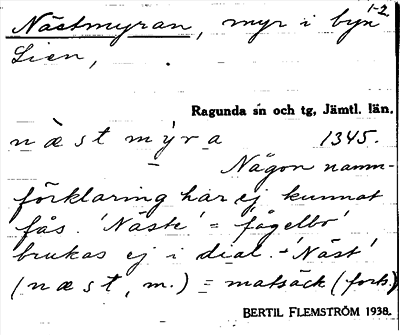 1-2
Nästmyran, myr i byn
Lien,
Ragunda sn och tg, Jämtl. län.
næstmy̆ra 1345.
Någon namn-
förklaring har ej kunnat
fås. 'Näste' = fågelbo'
brukas ej i dial. - 'Näst'
(næst, m.) = matsäck (forts.)
BERTIL FLEMSTRÖM 1938.